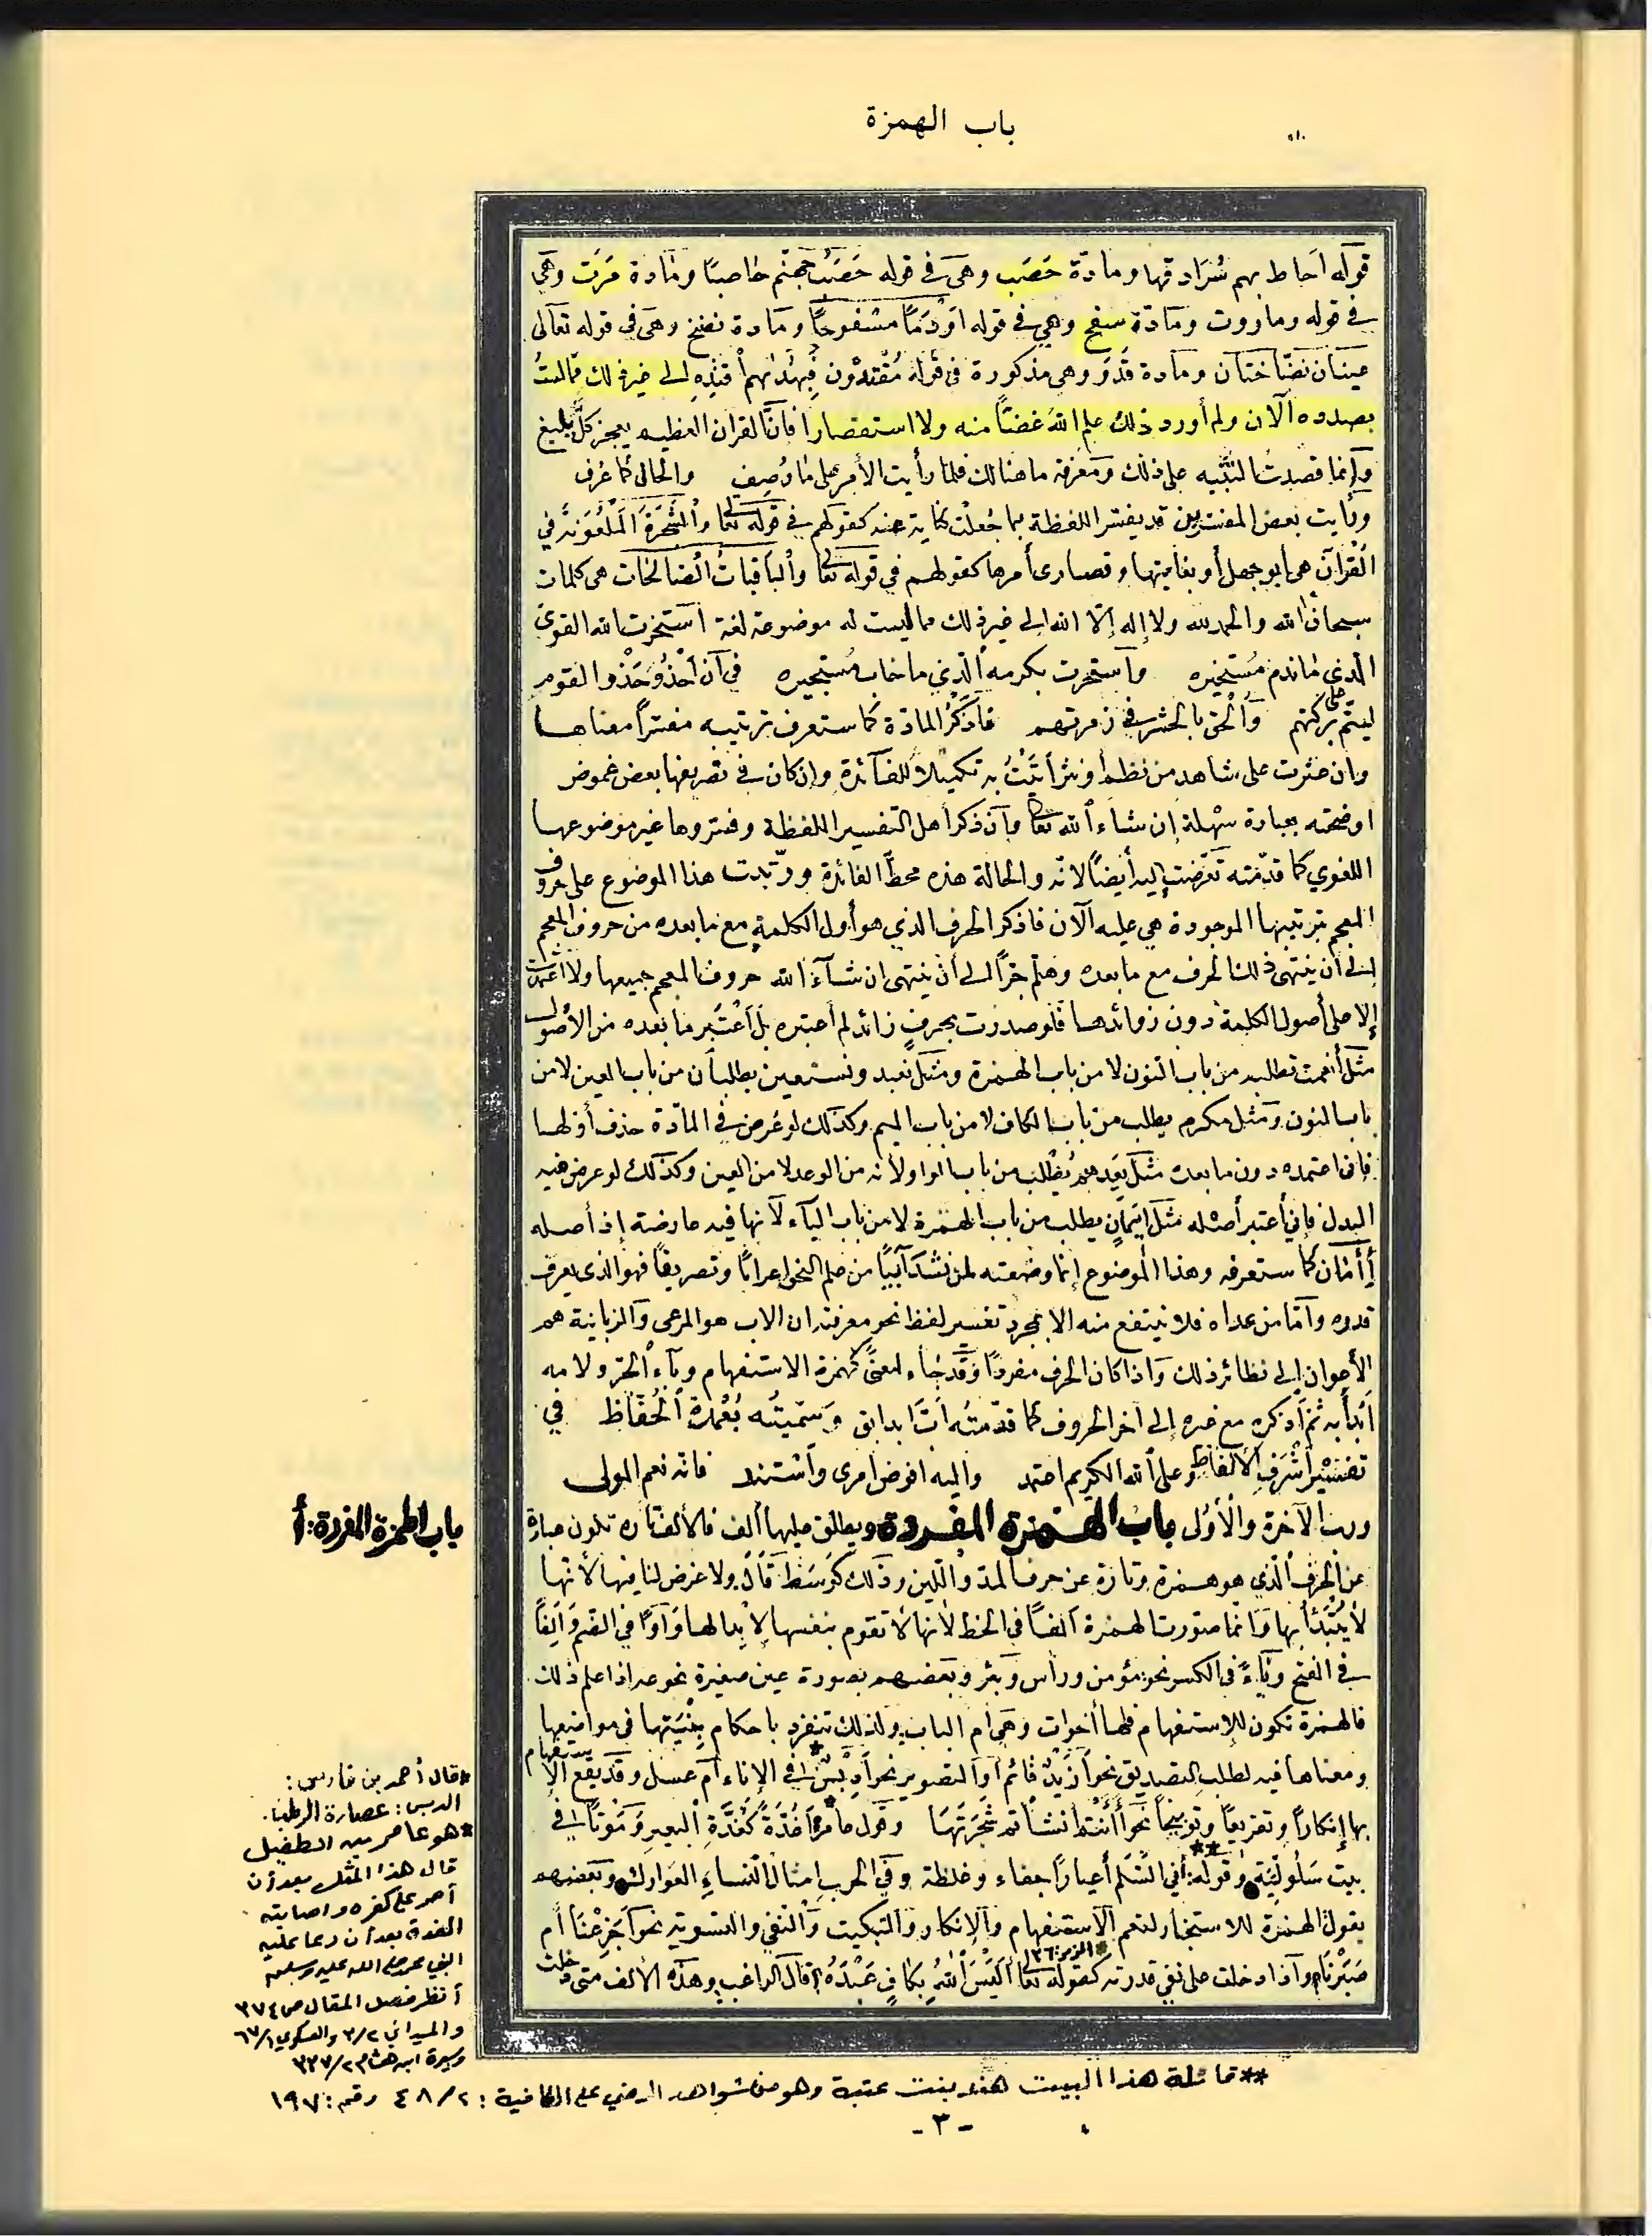 باب الهمزة
قوله أحاط بهم سُرَادقها ومادّة حَصَب وهى فى قوله حَصَبُ جهنّم حاصبًا ومادة مَرَت وهى
فى قوله وماروت ومادّة سفح وهى فى قوله أَوْدَمًا مسْفوحًا ومادة نضخ وهى فى قوله تعالى
عينان نضّاختان ومادة قَدَوَ وهى مذكورة فى قوله مُقْتدُون فَبِهُدٰىهُم اقتدِهِ إلى غير ذلك ممّا لستُ
بصدده الآن ولم أورد ذلك علم الله غضّا منه ولا استقصارا فانّ القرآن العظيم يعجز كلّ بليغ
وإنّما قصدتُ التنبيه على ذلك ومعرفة ما هنالك فلمّا رأيت الأمر على ما وُصِف والحال كما عُرف
ورأيت بعض المفسّرين قد يفسّر اللفظة بما جُعلت كناية عنه كقولهم فى قوله تعالى والشَّجَرَةَ المَلْعُوَنةَ في
القُرآن هى أبو جهل أو بغايتها وقصارى أمرها كقولهم في قوله تعالى وٱلباقياتُ ٱلصّالحَات هى كلمات
سبحان الله والحمد لله ولا إله إلّا الله إلى غير ذلك مما ليست له موضوعة لغة استخرت الله القوىّ
الّذى ما ندم مُستخيره واستجرت بكرمه الّذي ما خاب مُستجيره فى أن أحْذُوَ حَذْوَ القوم
ليتمّ علىّ بركتهم وأُلحق بالحشر فى زمرتهم فأذكُر المادّة كما ستعرف ترتيبه مفسّراً معناها
وإن عثرت على شاهد من نظم أو نثر أتيتُ به تكميلاً للفائدة وإن كان فى تصريفها بعض غموض
اوضحته بعبارة سهْلة إن شاء ٱلله تعالى وان ذكر أهل التفسير اللفظة وفسّروها غير موضوعها
اللغوي كما قدّمته تعرّضت إليه أيضًا لأنّه والحالة هذه محطّ الفائدة ورتّبت هذا الموضوع على حروف
المعجم بترتيبها الموجودة هى عليه الآن فاذكر الحرف الذي هو أول الكلمة مع ما بعده من حروف المعجم
إلى أن ينتهى ذلك الحرف مع ما بعده وهلمّ جرًّا إلى أن ينتهى ان شاء الله حروف المعجم جميعها ولا أعتمدُ
إلا على أصول الكلمة دون زوائدها فلو صدرت بحرفٍ زائد لم أعتبره بل أعتبر ما بعده من الأصول
مثل أنعمت تطلبه من باب النون لا من باب الهمزة ومثل نعبد ونستعين يطلبان من باب العين لا من
باب النون ومثل مكرم يطلب من باب الكاف لا من باب الميم وكذلك لو عُرض فى المادّة حذف أولها
فإنى اعتمده دون ما بعده مثل يعِدهُم يُطلب من باب الواو لأنه من الوعد لا من العين وكذلك لو عرض فيه
البدل فإنى أعتبر أصله مثل إيَمانٍ يطلب من باب الهمزة لا من باب الياء لأنها فيه عارضة إذ أصله
أِأْمَان كما ستعرفه وهذا الموضوع إنما وضعته لمن شَدَا شيئًا من علم النحو إعرابًا وتصريفًا فهو الذى يعرف
قدره وأمّا من عداه فلا ينتفع منه الا بمجرد تفسير لفظ نحو معرفته ان الاب هو المرعى والزبانية هم
الأعوان إلى نظائر ذلك واذا كان الحرف مفردًا وَقَدْ جاء لمعنًى كهمزة الاستفهام وباء الجرّ ولامه
أبدأ به ثم أذكره مع غيره إلى آخر الحروف كما قدّمتُه السابق وَسَمّيتُه بُعْمدة ٱلحُفّاظ فى
تفْسِيْر أشْرَفِ الألفاظ وعلى ٱلله الكريم اعتمد واليه افوض امرى وأستند فانّه نعم المولى
ورب الآخرة والأوْلى باب الهمزة المفردة ويطلق عليها ألف فالألف تارة تكون عبارة
عن الحرف الذي هو همزة وتارة عن حرف المدّ واللين وذلك كوسَط قَالَ ولا غرض لنا فيها لأنّها
لا يُبتَدأ بها وَانّما صوّرت الهمزة الفًا فى الخط لأنها لا تقوم بنفسها لإبدالها وَاوًا في الضمّ وَالِفًا
فى الفتح ويَاءً فى الكسر نحو مؤمن ورأس وبئر وبعضهم بصورة عين صغيرة نحو عـ اذا علم ذلك
فالهمزة تكون للاستفهام فلها أخوات وهى ام الباب ولذلك تنفرد باحكام بيّنتها فى مواضعها
ومعناها فيه لطلب التصديق نحو أزَيْدٌ قائم أو التصوير نحو أَدِبْسٌ* فى الإناء أم عسل وقد يقع الاستفهام
بها إنكارًا وتقريعًا وتوبيخًا نحو أَأَنْتُم أنشأتم شَجَرَتَهَا وقول عامر* أغُدَّةً كغُدَّةِ ٱلبعير وَمَوْتًا فى
بيت سَلُولِيّة وقوله:** أفي السِّلم أعيارًا جفاء وغلظة وفى الحرب امثال النساء العَوارك وبعضهم
يقول الهمزة للاستخبار لتعم الاستفهام والإنكار والتبكيت والنفي والتسوية نحو أجَزِعْنَا أم
صَبَرْنَا وإذا دخلت على نفي قدرته كقوله تعالى أَلَيْسَ ٱللهُ بِكَافٍ عَبْدَهُ* الزمر: ٣٦ قال الراغب وهذه الألف متى دخلت
باب الهمزة المفردة: أ
*قال أحمد بن فارس:
الدبس: عصارة الرطب.
*هو عامر بن الطفيل
قال هذا المثل بعد أن
أصر على كفره واصابته
الغدة بعد أن دعا عليه
النبي محمد صلى الله عليه وسلم
أنظر فصل المقال ص ٣٧٤
والميداني ٢/٣ والعسكري ١/٦٧
وسيرة ابن هشام ٢/٣٣٧
**قائلة هذا البيت هند بنت عتبة وهو من شواهد الرضي على الكافية: ٢/٤٨ رقم: ١٩٧
- ٣ -